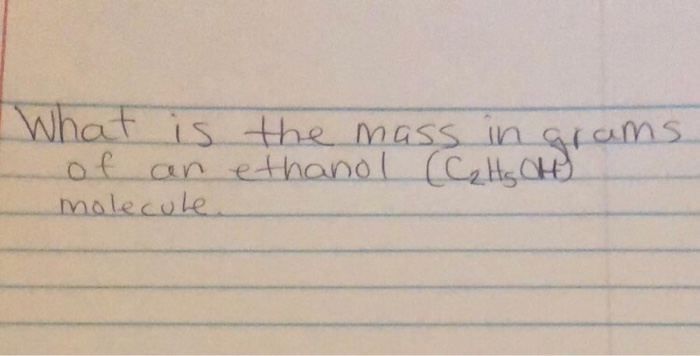 What is the mass in grams
of an ethanol (C₂H₅OH)
molecule.